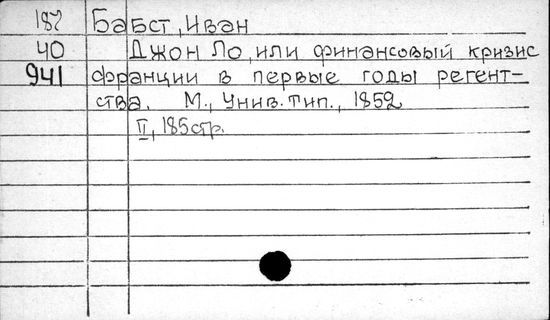 187 Бабст, Иван
40 Джон Ло, или финансовый кризис
941 франции в первые годы регент-
ства. М., Унив. тип., 1852
II, 185 стр.